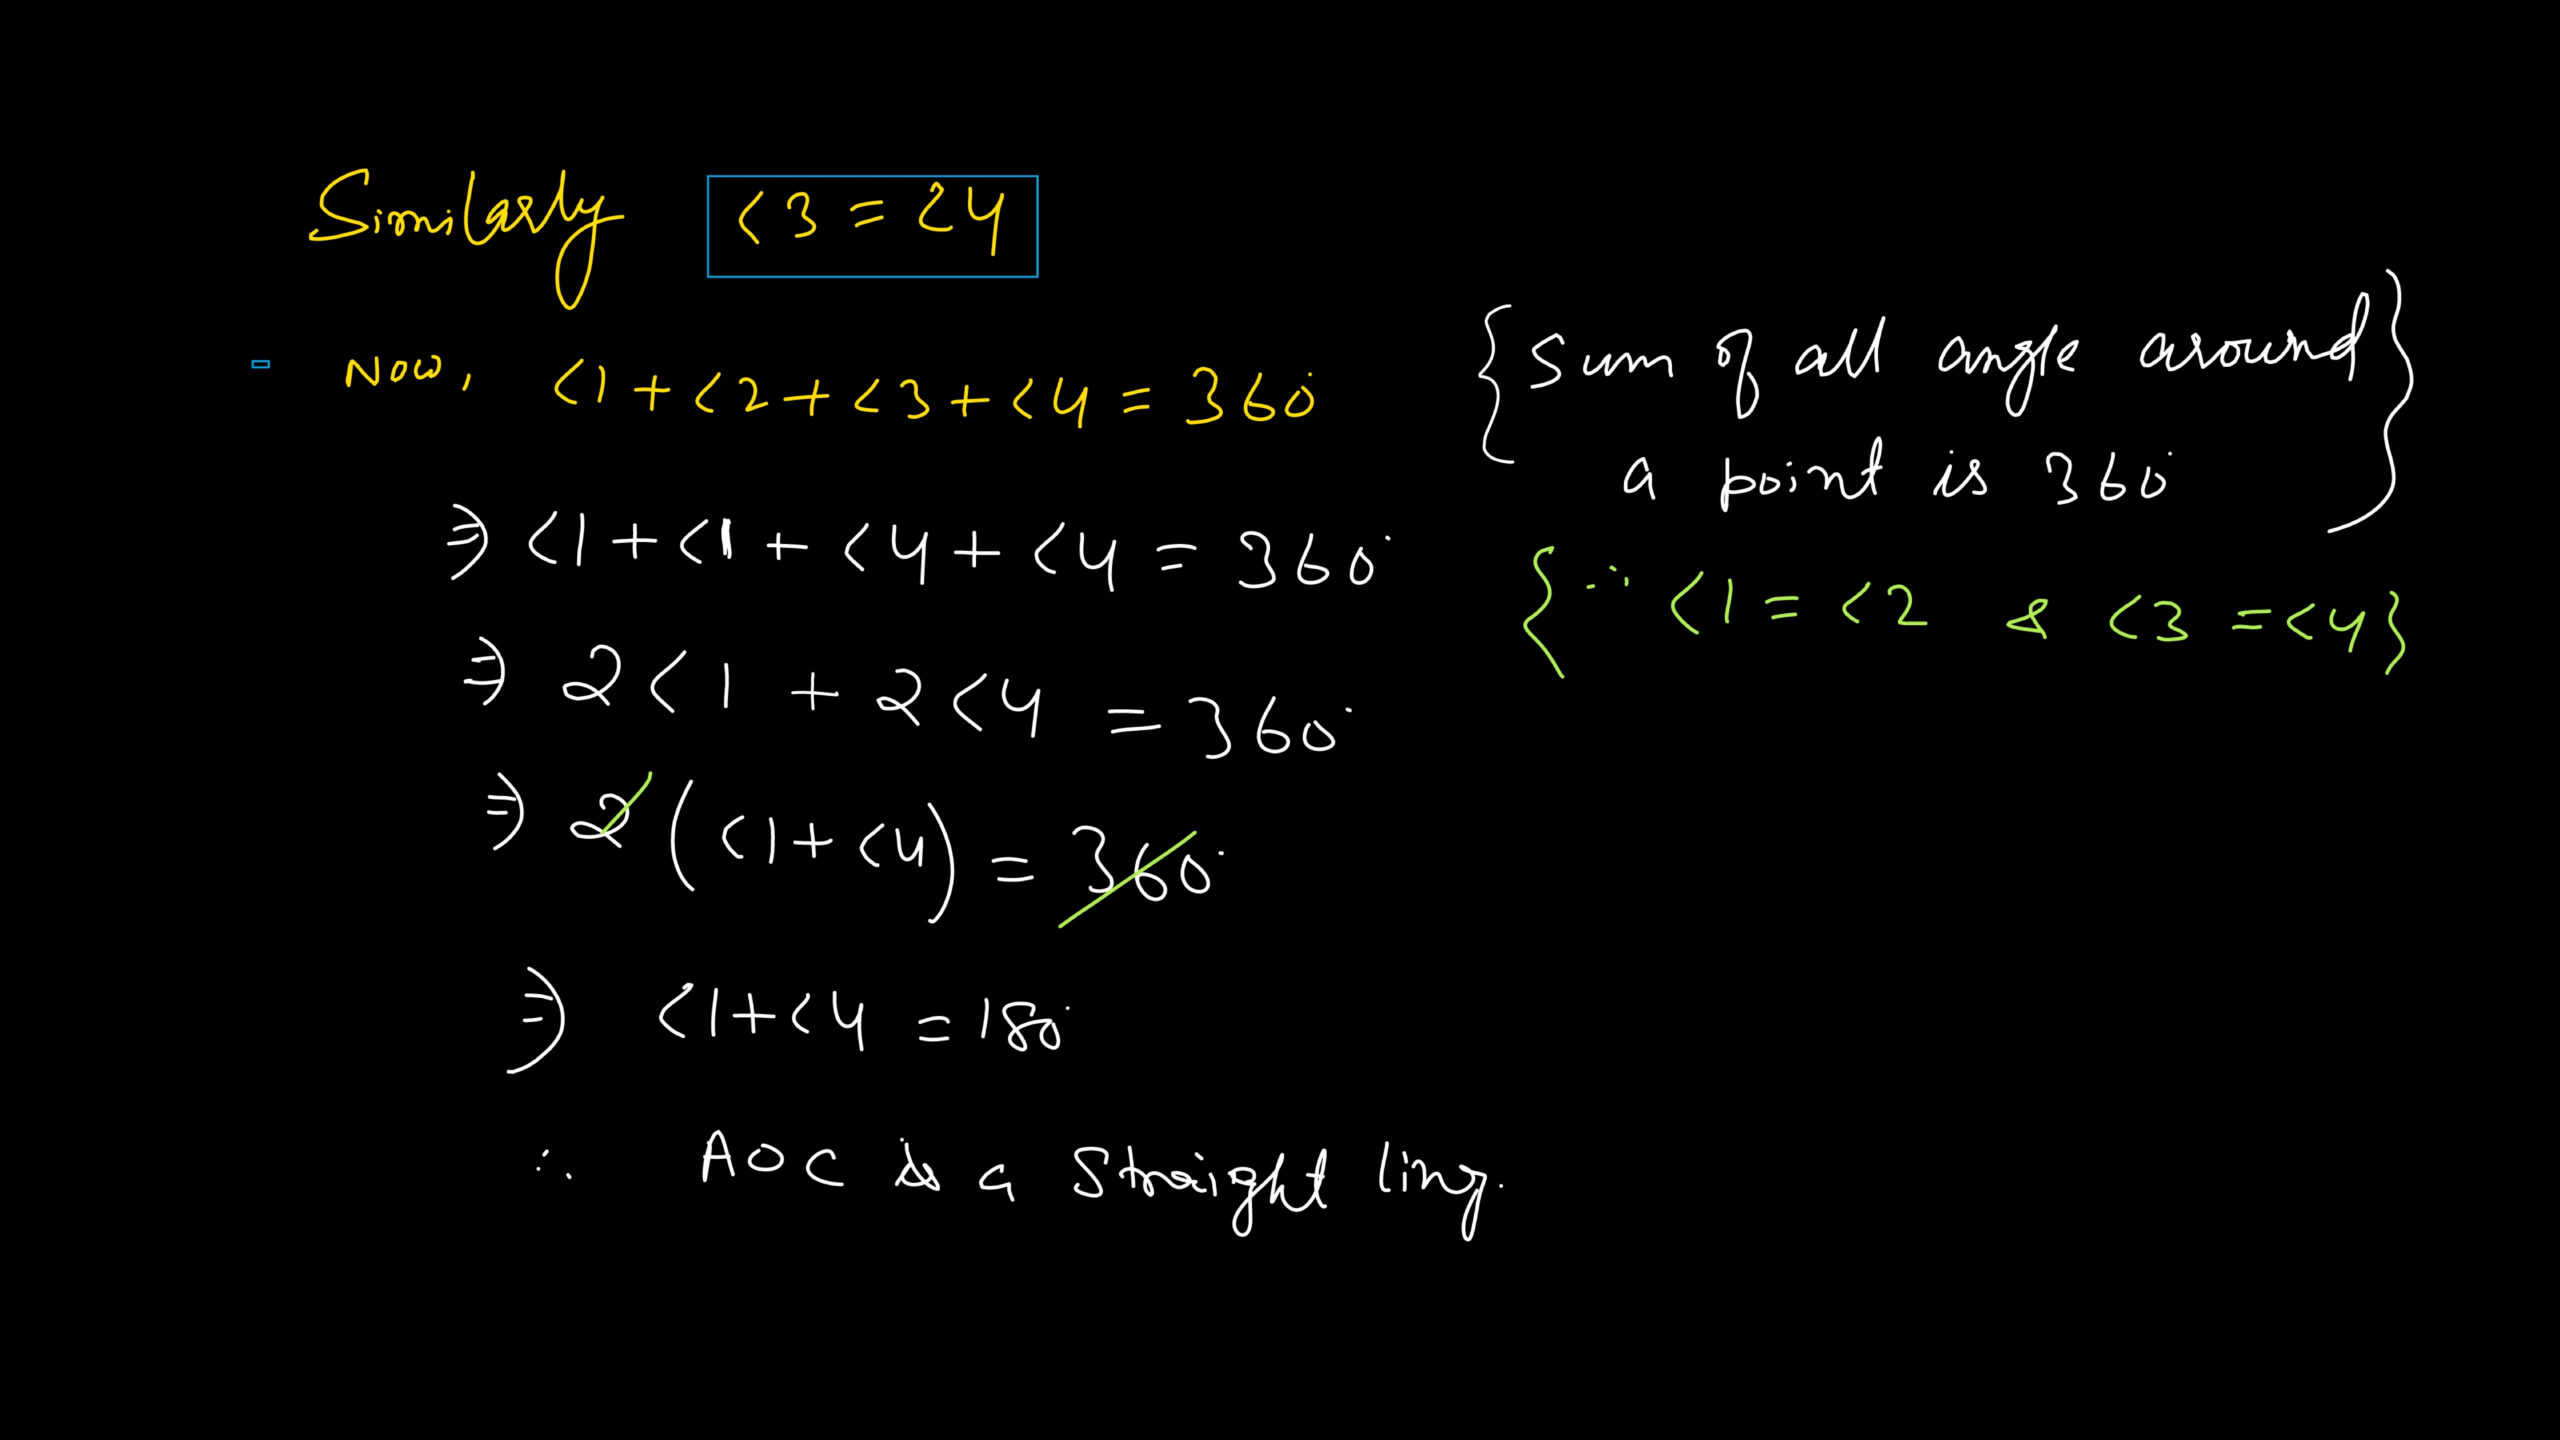 Similarly <3 = <4
Now, <1 + <2 + <3 + <4 = 360°
{ Sum of all angle around
a point is 360° }
⇒ <1 + <1 + <4 + <4 = 360°
{ ∵ <1 = <2 & <3 = <4 }
⇒ 2<1 + 2<4 = 360°
⇒ 2 ( <1 + <4 ) = 360°
⇒ <1 + <4 = 180°
∴ AOC is a straight line.